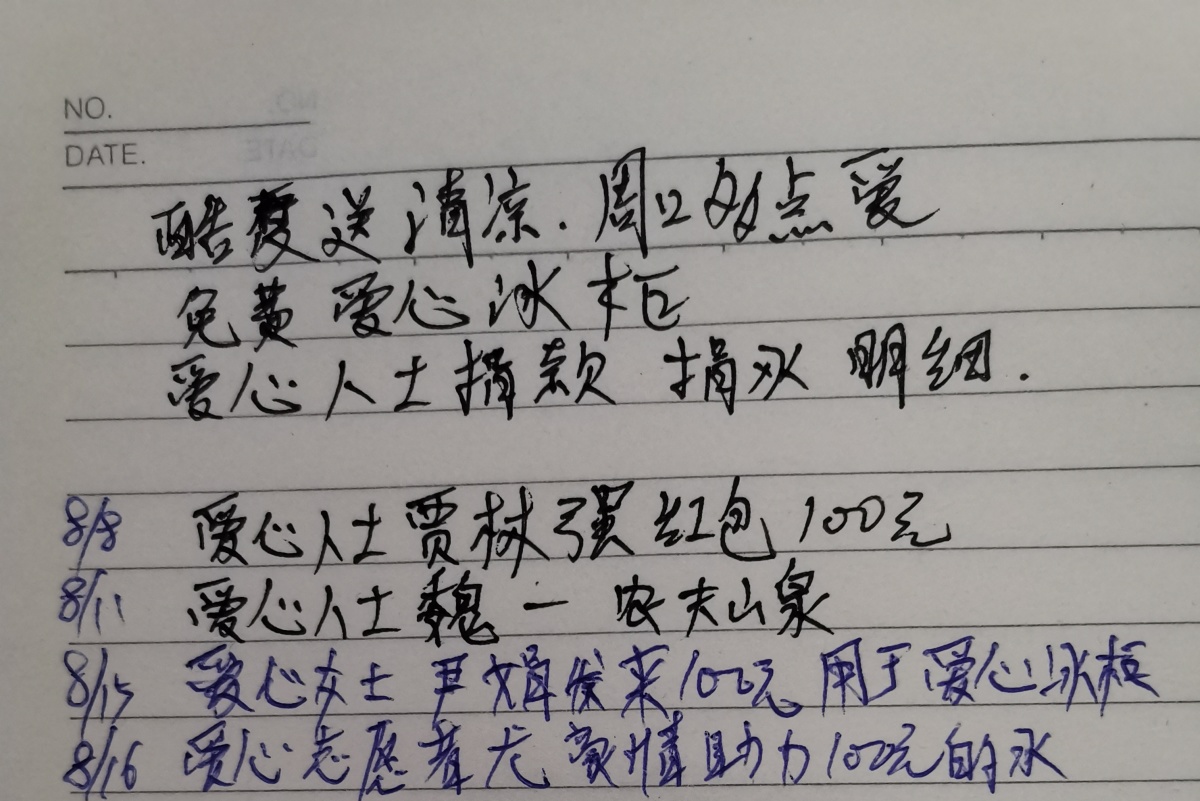 NO.
DATE.
酷夏送清凉.周口多点爱
免费爱心冰柜
爱心人士捐款 捐水 明细.
8/8 爱心人士贾树强红包100元
8/11 爱心人士魏一农夫山泉
8/15 爱心女士尹娟发来100元用于爱心冰柜
8/16 爱心志愿者尤豪情助力100元的水